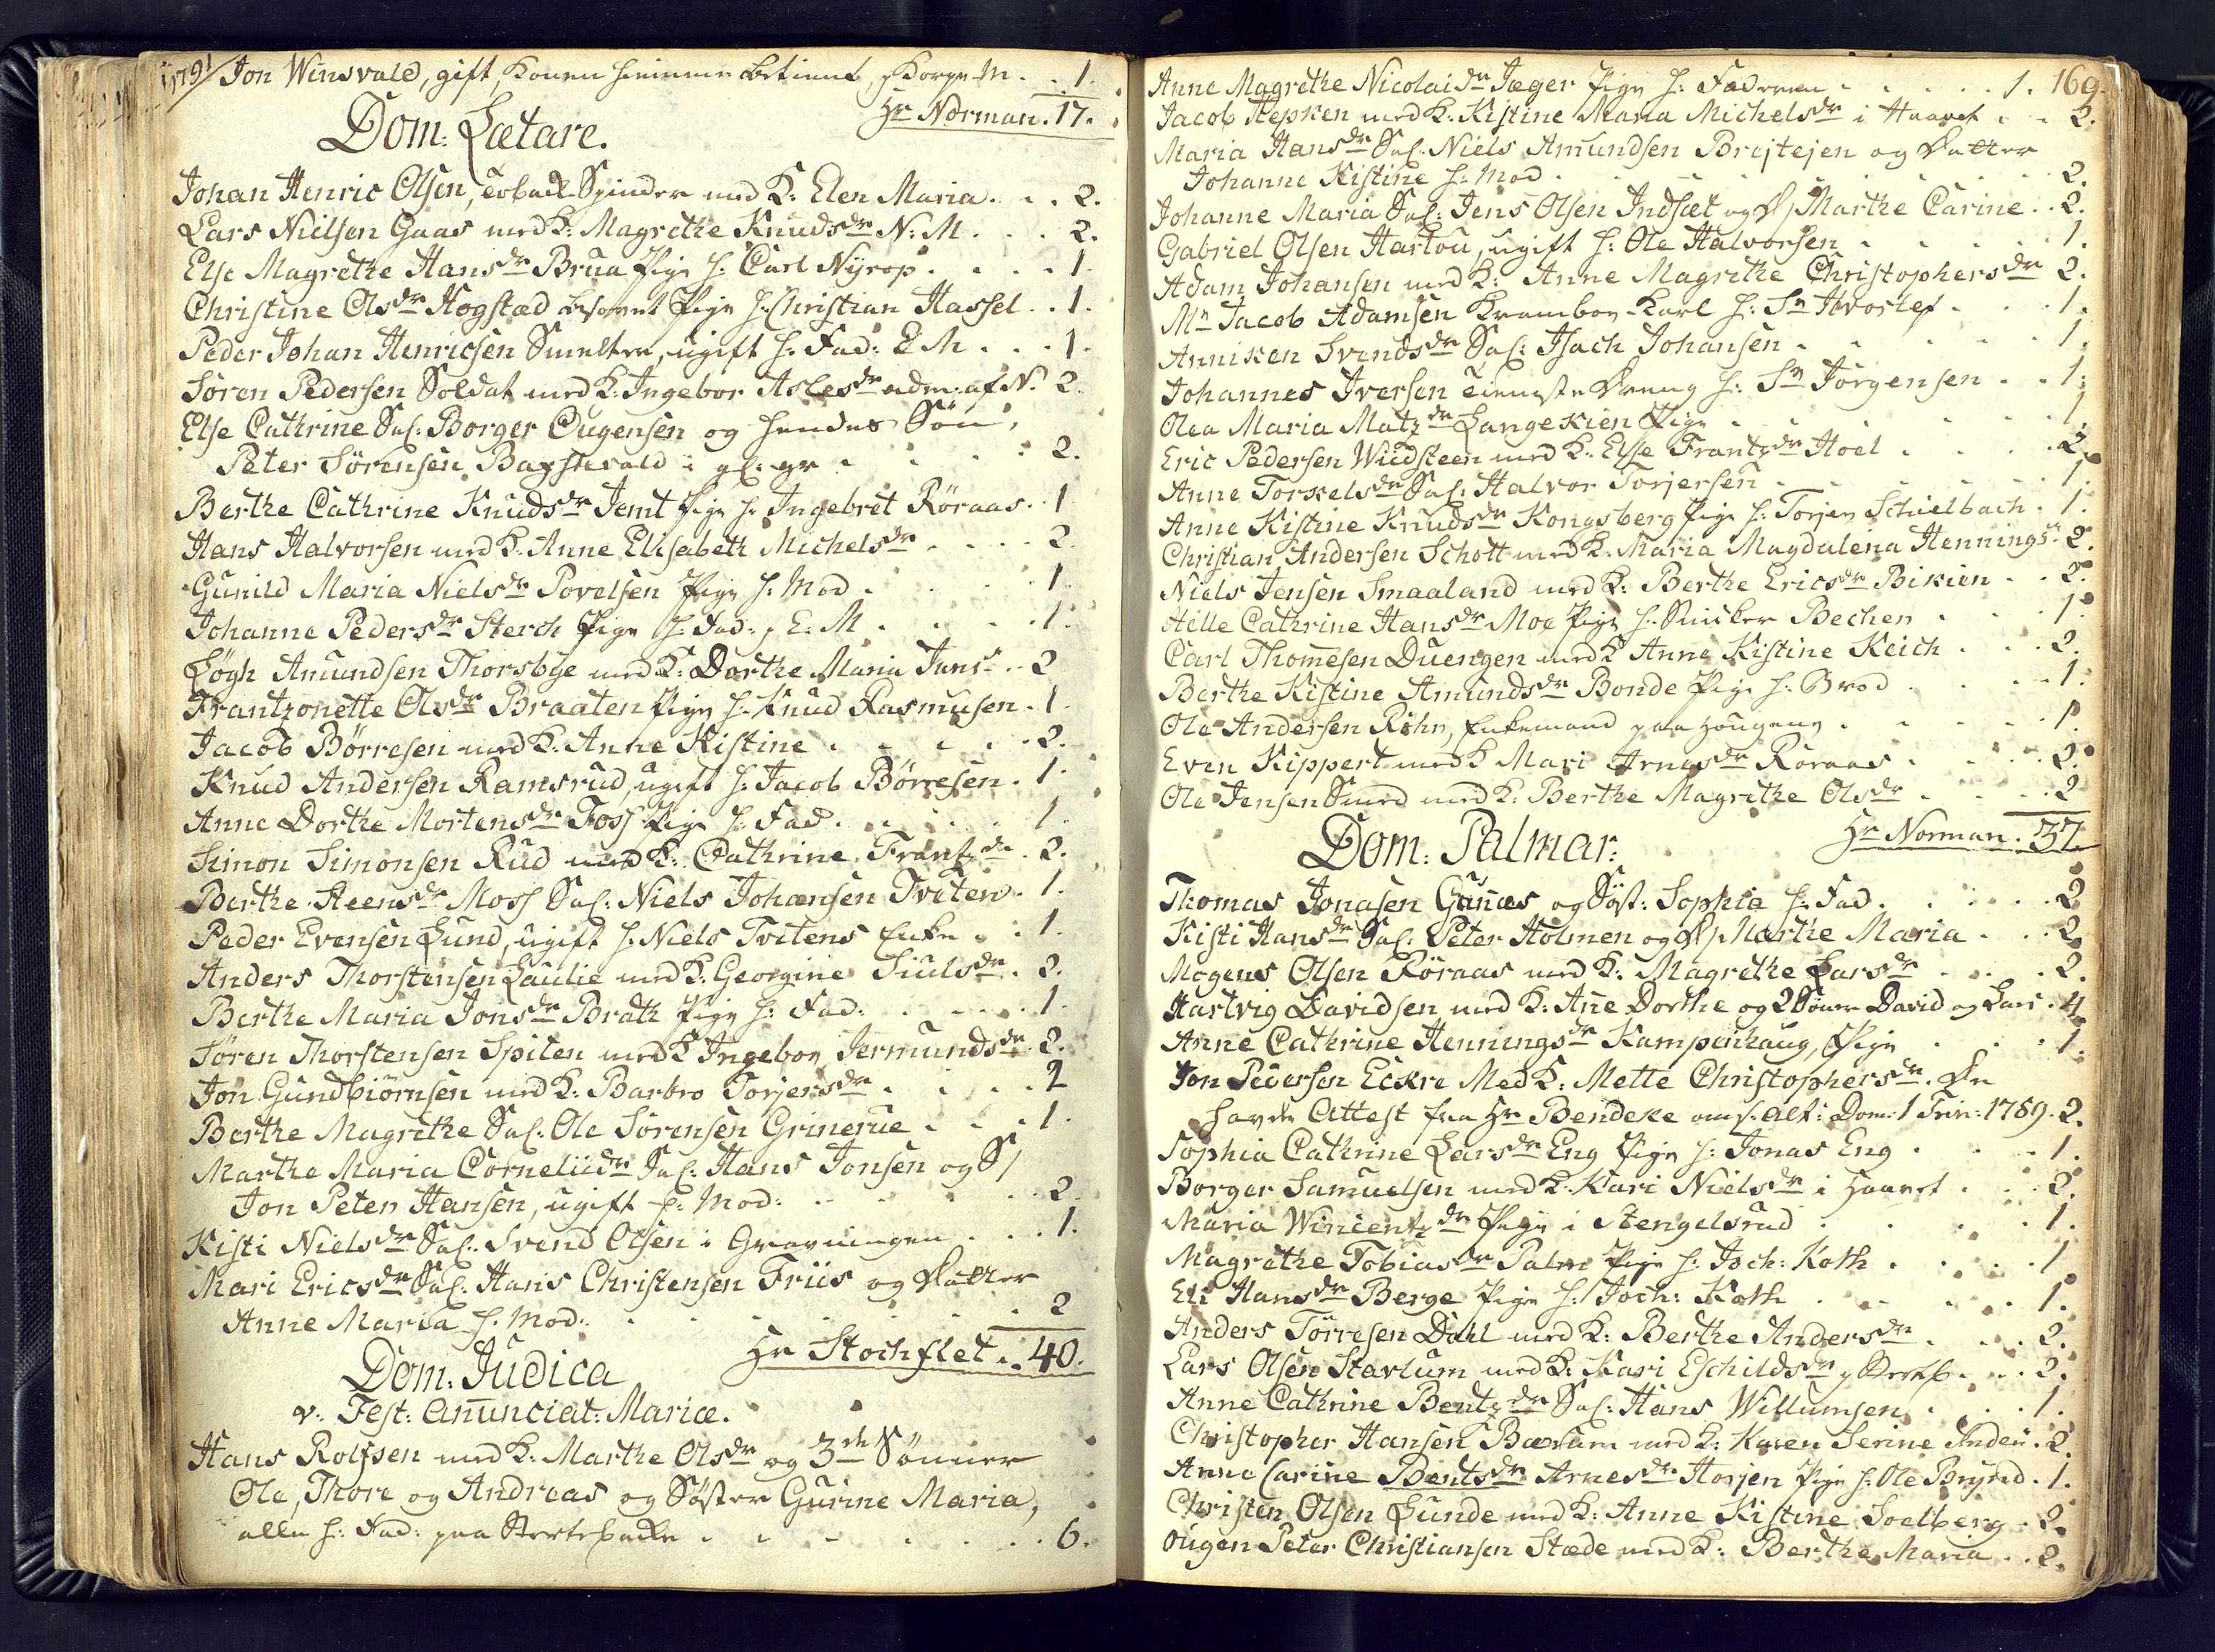 1791 Jon Winsvald, gift, Konen hiemme betient, Korge M. . 1.
Hr Norman. 17.
Dom: Lætare.
Johan Henric Olsen, Tobac: Spinder med K: Elen Maria. . . 2.
Lars Nielsen Gaas med K: Magrethe Knudsdr N: M . . . 2.
Else Magrethe Hansdr Brua Pige h: Carl Nyrop . . . . 1.
Christine Olsdr Hogstad besovet Pige h: Christian Hassel . . 1.
Peder Johan Henricsen Smelter, ugift h: Fad: E M . . . 1.
Søren Pedersen Soldat med K: Ingebor Aslesdr adm: af N. 2.
Else Cathrine Sal: Borger Eugensen og hendes Søn,
Peter Sørensen Bagstevold i gl: gr . . . . 2.
Berthe Cathrine Knudsdr Jemt Pige h: Ingebret Röraas . 1
Hans Halvorsen med K: Anne Elisabeth Michelsdr . . . . 2.
Gunild Maria Nielsdr Povelsen Pige h: Mod . . . . 1
Johanne Pedersdr Sterch Pige h: Fad: , E: M . . . . 1.
Løgh Amundsen Thorsbye med K: Dorthe Maria Jens . . 2
Frantzonette Olsdr Braaten Pige h: Knud Rasmusen . 1.
Jacob Börresen med K: Anne Kistine . . . . . 2.
Knud Andersen Ramsrud, ugift h: Jacob Börresen . 1.
Anne Dorthe Mortensdr Foss Pige h: Fad. . . . . 1.
Simon Simonsen Rud med K: Cathrine Frantzdr . 2.
Berthe Steensdr Moss Sal: Niels Johansen Tviten . 1.
Peder Evensen Lund, ugift h: Niels Tvitens Enke . . 1.
Anders Thorstensen Laulie med K: Georgine Siulsdr . 2.
Berthe Maria Jonsdr Brath Pige h: Fad: . . . . 1.
Søren Thorstensen Spiten med K Ingebor Jermundsdr . 2.
Jon Gundbiørnsen med K: Barbro Torjersdr . . . . 2
Berthe Magrethe Sal: Ole Sørensen Grinerue . . . 1.
Marthe Maria Corneliidr Sal: Hans Jonsen og S/
Jon Peter Hansen, ugift h: Mod: . . . . . 2.
Kisti Nielsdr Sal: Svend Olsen i Gravningen . . . 1.
Mari Ericsdr Sal: Hans Christensen Friis og Datter
Anne Maria h: Mod: . . . . . . . 2
Hr Stochflet . . 40.
Dom: Judica
v: Fest: Anunciat: Mariæ.
Hans Rolfsen med K: Marthe Olsdr og 3de Sönner
Ole, Thore og Andreas og Søster Gurine Maria,
alle h: Fad: paa . . . . . . 6.
Anne Magrethe Nicolaidr Jæger Pige h: Faderen . . . . . 1. 169.
Jacob Hepken med K: Kistine Maria Michelsdr i Haavet . . 2.
Maria Hansdr Sal: Niels Amundsen Brejtejen og Datter
Johanne Kistine h: Mod . . . . . . . 2.
Johanne Maria Sal: Jens Olsen Indsæt og D/ Marthe Carine . . 2.
Gabriel Olsen Hartou, ugift h: Ole Halvorsen . . . . . 1.
Adam Johansen med K: Anne Magrethe Christophersdr 2.
Mr Jacob Adamsen Kramboe Karl h: Sr Hvoslef . . . 1.
Anniken Svendsdr Sal: Isach Johansen . . . . . 1.
Johannes Iversen tieneste Dreng h: Sr Jörgensen . . 1.
Olea Maria Matzdr Langekien Pige . . . . . 1.
Eric Pedersen Widsteen med K: Else Frantzdr Hoel . . . . 2.
Anne Torkelsdr Sal: Halvor Torjersen . . . . . 1.
Anne Kistine Knudsdr Kongsberg Pige h: Torjer Schielbach . 1.
Christian Andersen Schott med K: Maria Magdalena Hennings 2.
Niels Jensen Smaaland med K: Berthe Ericsdr Bikien . . 2.
Hille Cathrine Hansdr Moe Pige h: Snicker Bechen . . . 1.
Carl Thomesen Duengen med K Anne Kistine Keich . . . 2.
Berthe Kistine Amundsdr Bonde Pige h: Brod . . . . 1.
Ole Andersen Röhn, Enkemand paa Hougene . . . . . 1.
Even Kippert med K Mari Arnesdr Röraas . . . . 2.
Ole Jensen Smed med K: Berthe Magrethe Olsdr . . . . 2
Hr Norman . 37.
Dom: Palmar:
Thomas Jonasen Gunæs og Søst: Sophia h: Fad . . . . . 2
Kisti Hansdr Sal: Peter Holmen og D/ Marthe Maria . . . 2.
Mogens Olsen Röraas med K: Magrethe Larsdr . . . . 2.
Hartvig Davidsen med K: Ane Dorthe og 2 Sönner David og Lars . 4.
Anne Cathrine Henningsdr Kampenhaug, Pige . . . . 1.
Jon Pedersen Eckre Med K: Mette Christophersdr. De
havde Attest fra Hr Bendeke om s: Alt: Dom: 1 Trin: 1789. 2.
Sophia Cathrine Larsdr Eng Pige h: Jonas Eng . . . . 1.
Borger Samuelsen med K: Kari Nielsdr i Haavet . . . 2.
Maria Wincentzdr Pige i Stengelsrud . . . . . 1.
Magrethe Tobiasdr Palm Pige h: Joch: Koth . . . . 1
Eli Hansdr Berge Pige h: Joch: Koth . . . . . 1.
Anders Törresen Dahl med K: Berthe Andersdr . . . . 2.
Lars Olsen Starlum med K: Kari Eschildsdr . . . 2.
Anne Cathrine Bentzdr Sal: Hans Willumsen . . . 1.
Christopher Hansen Bærum med K: Karen Serine Anders: . 2.
Anne Carine Bentsdr Arnesdr Horjen Pige h: Ole Brynd . 1.
Christen Olsen Lunde med K: Anne Kistine Soelberg . 2.
Ougen Peter Christiansen Stæde med K: Berthe Maria . . 2.